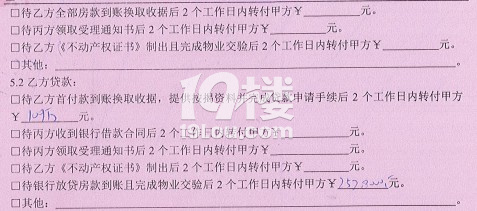 □待乙方全部房款到账换取收据后 2 个工作日内转付甲方¥元。
□待丙方领取受理通知书后 2 个工作日内转付甲方¥元。
□待乙方《不动产权证书》制出且完成物业交验后 2 个工作日内转付甲方¥元。
□其他:
5.2 乙方贷款:
□待乙方首付款到账换取收据，提供按揭资料并完成贷款申请手续后 2 个工作日内转付甲方
¥元。
□待丙方收到银行借款合同后 2 个工作日内转付甲方¥元。
□待丙方领取受理通知书后 2 个工作日内转付甲方¥元。
□待乙方《不动产权证书》制出后 2 个工作日内转付甲方¥元。
□待银行放贷房款到账且完成物业交验后 2 个工作日内转付甲方¥元。
□其他:
19楼